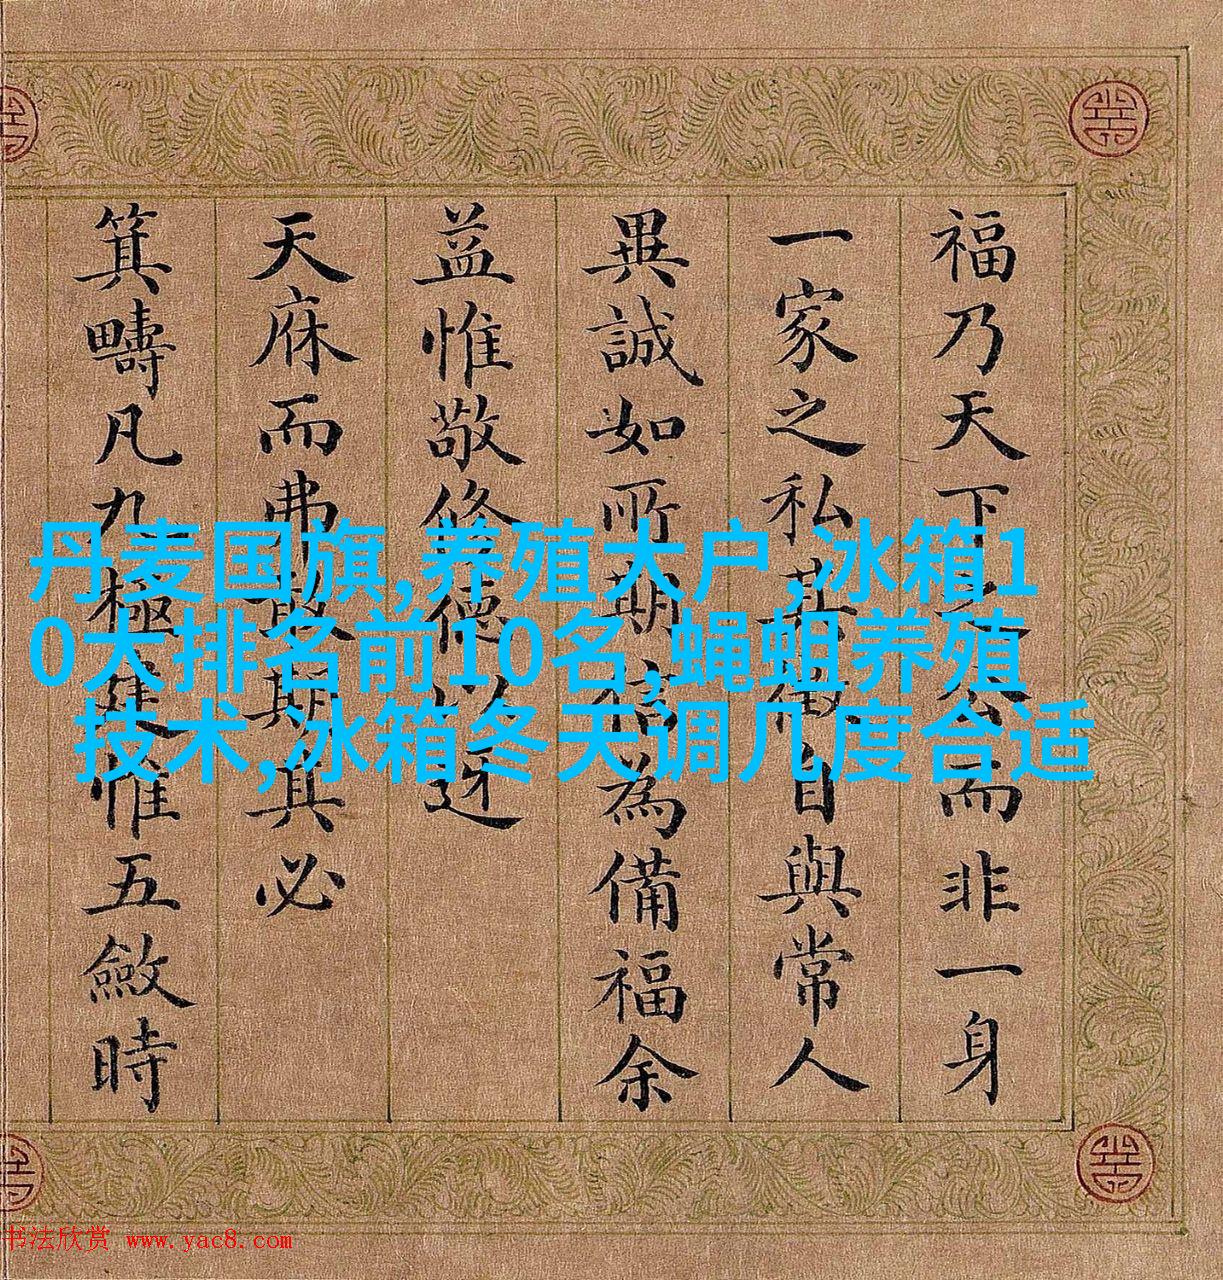 福乃天下之公而非一身
一家之私其備自與常人
異誠如所期信為備福余
益惟敬修德以迓
天庥而弗敢期其必
箕疇凡九極建惟五斂時
丹麦国旗,养殖大户,冰箱1
0大排名前10名,蝇蛆养殖
技术,冰箱冬天调几度合适
书法欣赏 www.yac8.com